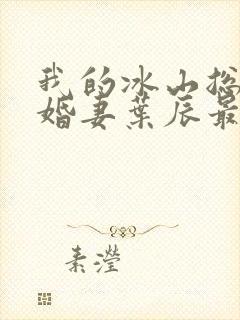 我的冰山总
婚妻葉辰最
素滢